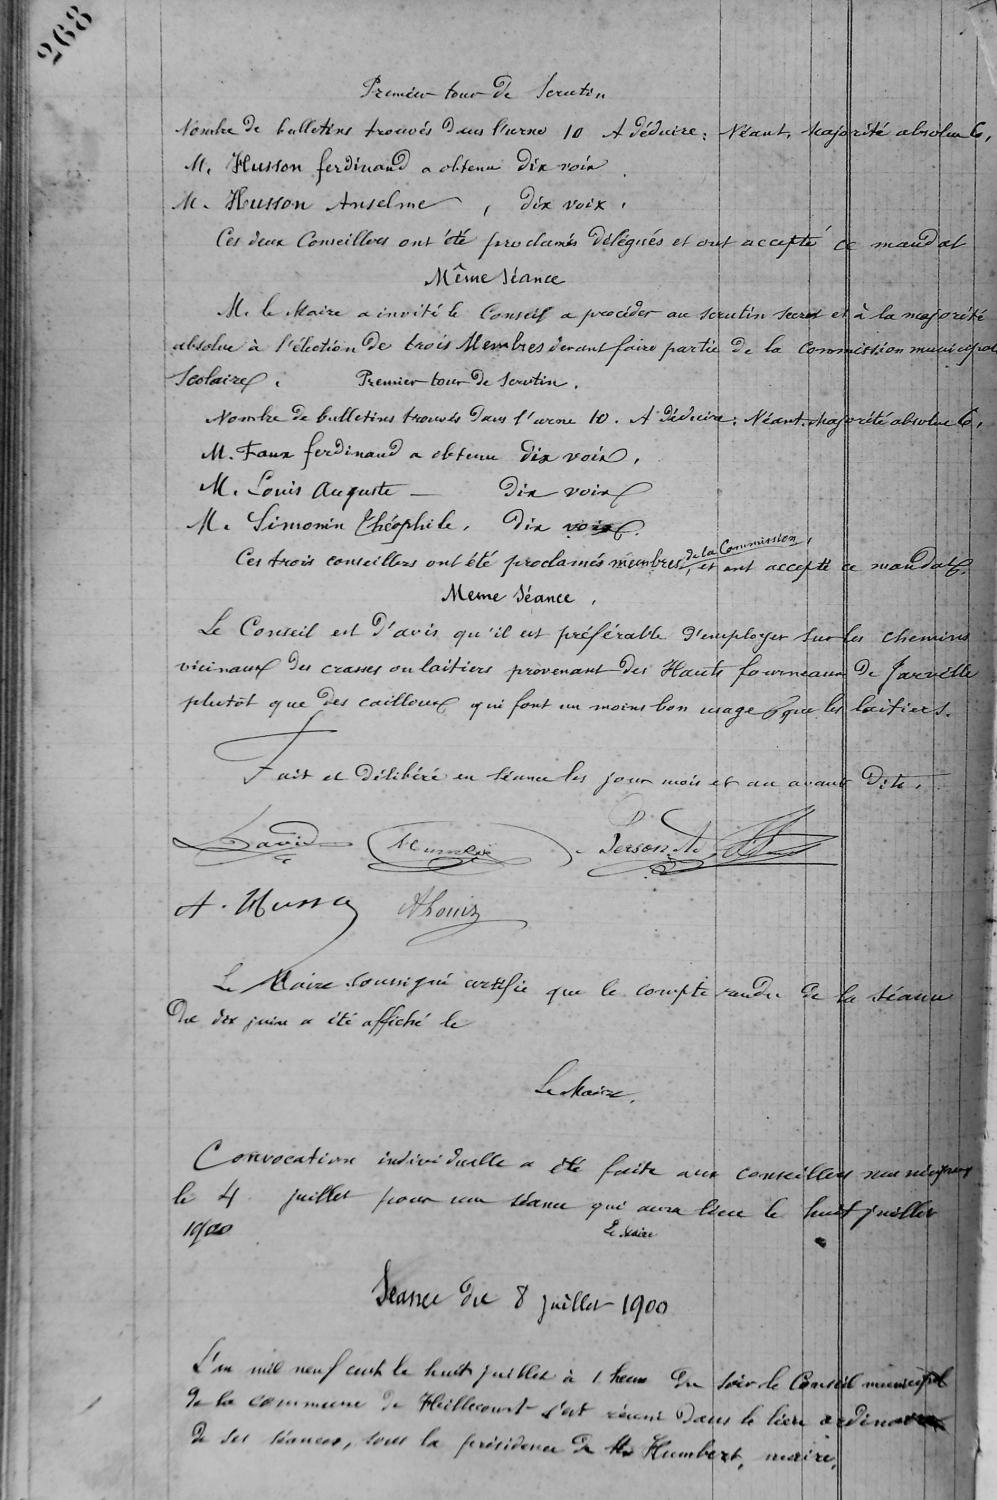 268
Premier tour de Scrutin
Nombre de bulletins trouvés dans l'urne 10 A déduire : Néant. Majorité absolue 6,
M. Husson ferdinand a obtenu dix voix
M. Husson Anselme , dix voix .
Ces deux Conseillers ont été proclamés délégués et ont accepté ce mandat
Même Séance
M. le Maire a invité le Conseil a procéder au scrutin secret et à la majorité
absolue à l'élection de trois Membres devant faire partie de la Commission municipale
Scolaire. Premier tour de Scrutin.
Nombre de bulletins trouvés dans l'urne 10. A déduire : Néant. Majorité absolue 6,
M. Faux ferdinand a obtenu dix voix,
M. Louis Auguste — dix voix
M. Simonin Théophile, dix voix.
Ces trois conseillers ont été proclamés membres de la Commission, et ont accepté ce mandat.
Meme Séance,
Le Conseil est d'avis qu'il est préférable d'employer sur les chemins
vicinaux des crasses ou laitiers provenant des Hauts fourneaux de Jarville
plutôt que des cailloux qui font un moins bon usage que les laitiers.
Fait et délibéré en séance les jour mois et an avant dits.
David Person
A. Husson ALouis
Le Maire soussigné certifie que le compte rendu de la séance
du dix juin a été affiché le
Le Maire,
Convocation individuelle a été faite aux conseillers municipaux
le 4 juillet pour une séance qui aura lieu le huit juillet
1900 Le Maire
Séance du 8 juillet 1900
L'an mil neuf cent le huit juillet à 1 heure du soir le Conseil municipal
de la commune de Heillecourt s'est réuni dans le lieu ordinaire
de ses séances, sous la présidence de M. Humbert, maire,